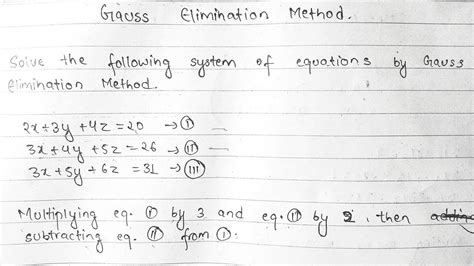 Gauss Elimination Method.
Solve the following system of equations by Gauss
elimination Method.
2x+3y+4z=20 →Ⓘ
3x+4y+5z=26 →Ⓘⓘ
3x+5y+6z=31 →(III)
Multiplying eq. Ⓘ by 3 and eq. (II) by 2, then adding
subtracting eq. (II) from Ⓘ.